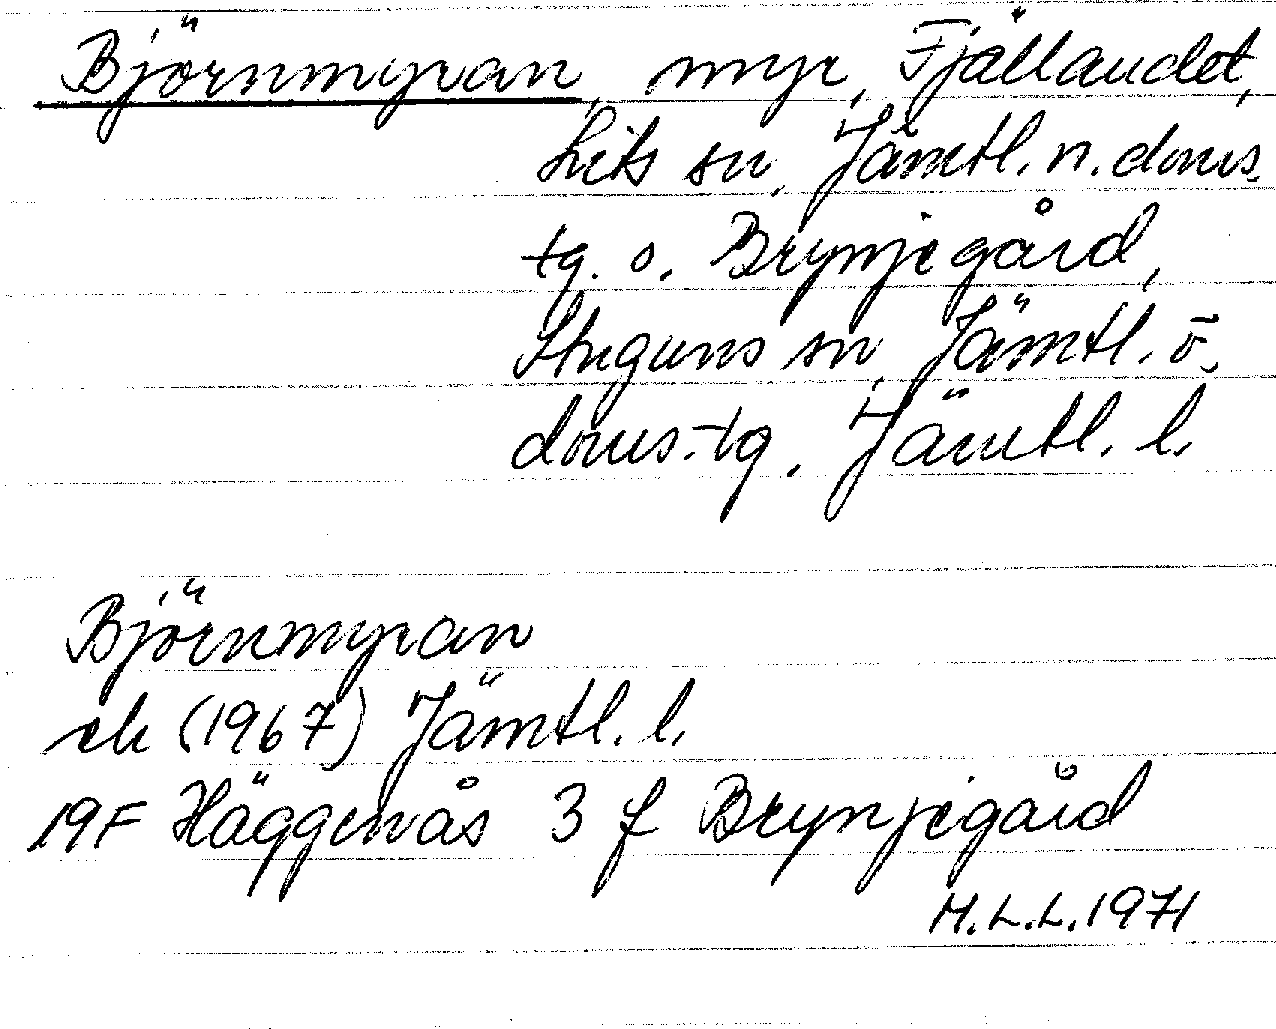 Björnmyran, myr, Fjällandet,
Lits sn, Jämtl. n. doms.
tg. o. Brynjegård,
Stuguns sn, Jämtl. ö.
doms.tg. Jämtl. l.
Björnmyran
ek (1967) Jämtl. l.
19F Häggenås 3 f Brynjegård
H.L.L. 1971